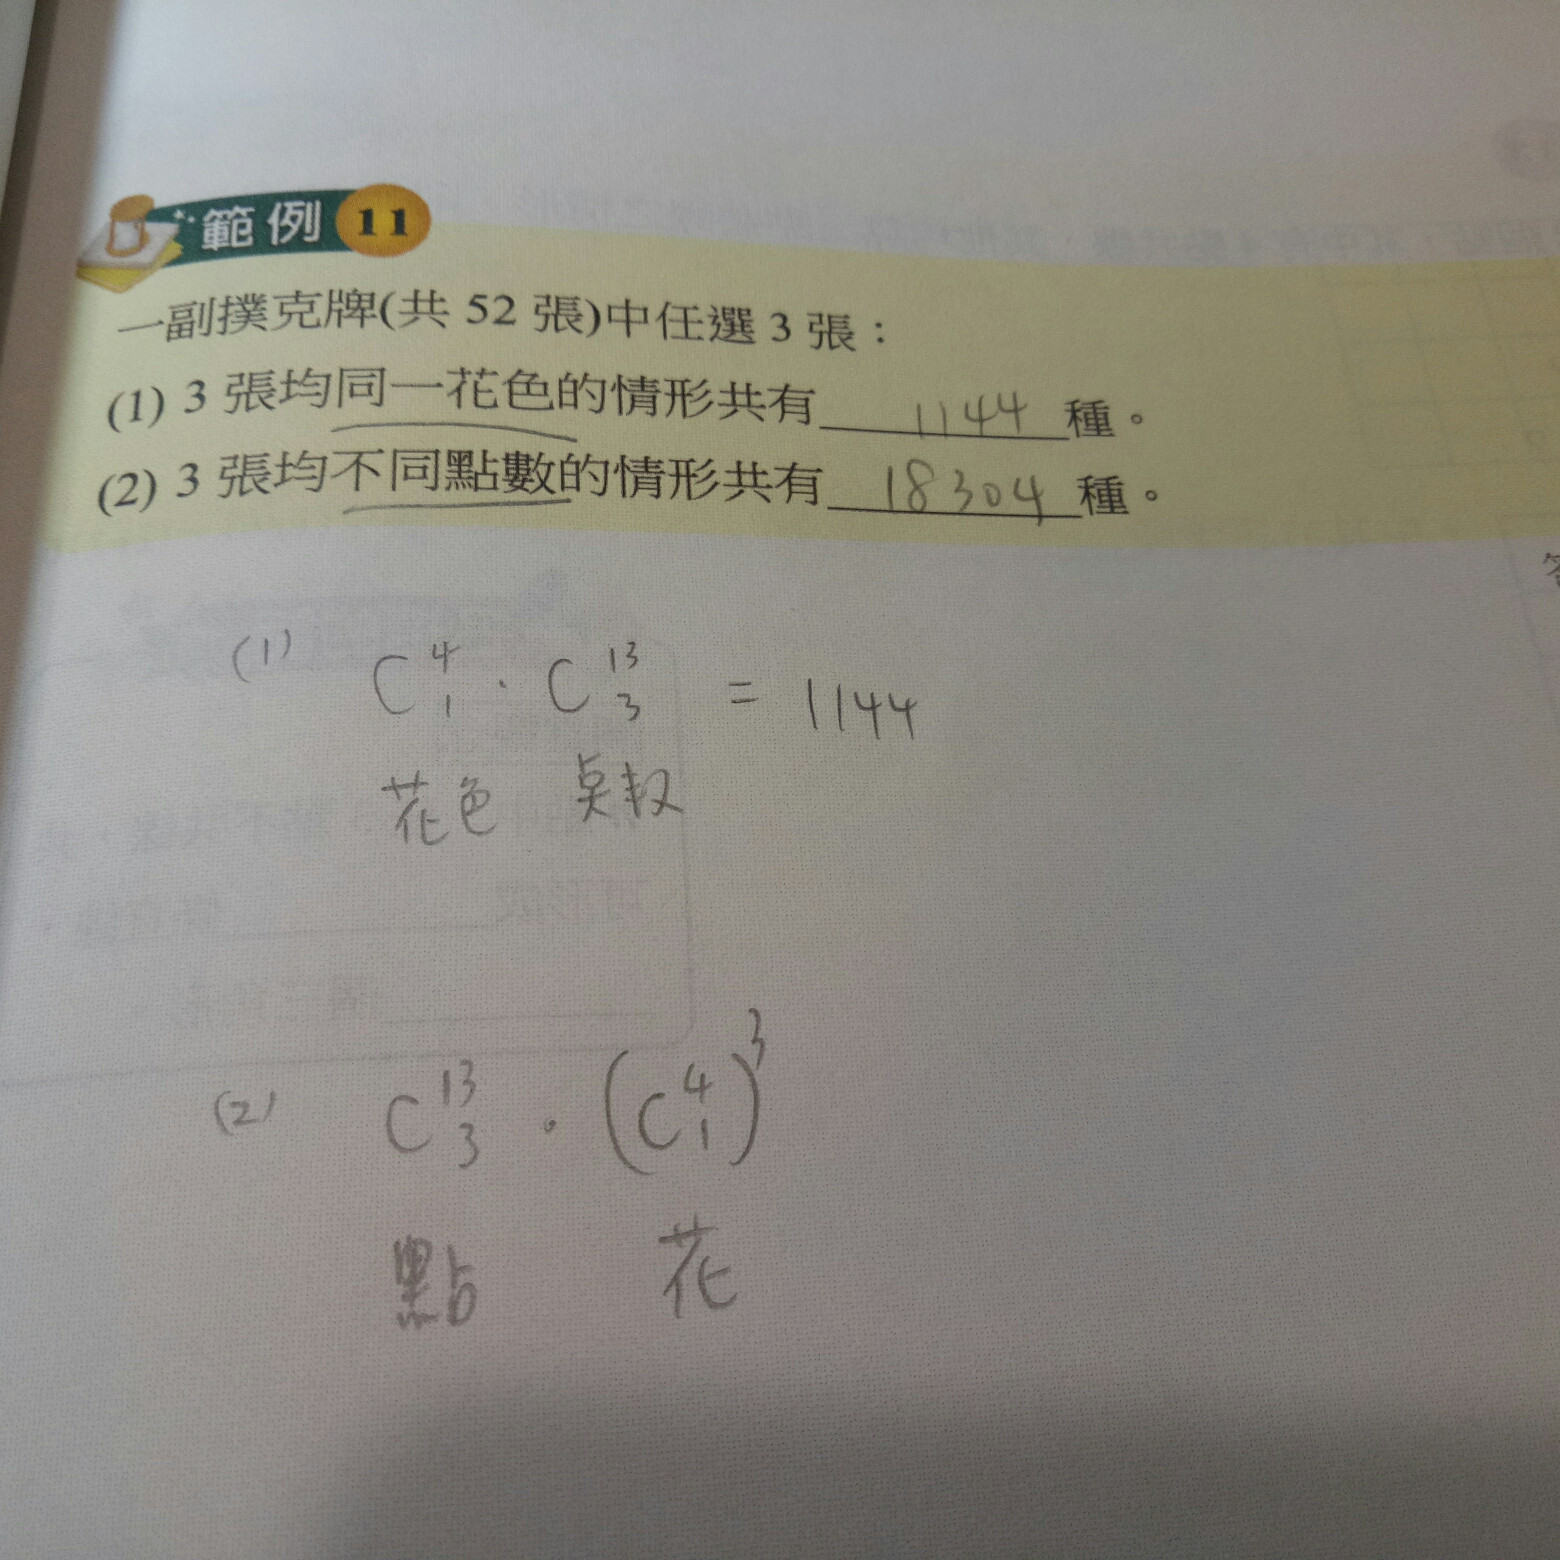 範例 11
一副撲克牌(共 52 張)中任選 3 張：
(1) 3 張均同一花色的情形共有 1144 種。
(2) 3 張均不同點數的情形共有 18304 種。
(1) C⁴₁ · C¹³₃ = 1144
花色 點数
(2) C¹³₃ · (C⁴₁)³
點 花